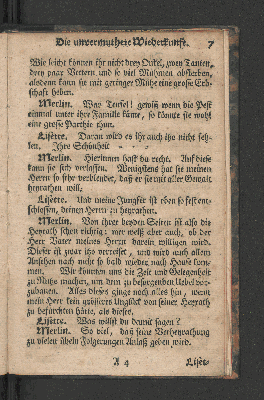 Die unvermuthete Wiederkunft. 7
Wie leicht können ihr nicht drey Onkel, zwey Tanten,
drey paar Vettern und so viel Muhmen absterben,
alsdenn kann sie mit geringer Mühe eine große Erb-
schaft heben.
Merlin. Was Teufel! gewiß wenn die Pest
einmal unter ihre Familie käme, so könnte sie wohl
eine große Parthie thun.
Lisette. Daran wird es ihr auch itzt nicht feh-
len. Ihre Schönheit - - -
Merlin. Hierinnen hast du recht. Auf diese
kann sie sich verlassen. Wenigstens hat sie meinen
Herrn so sehr verblendet, daß er sie mit aller Gewalt
heyrathen will.
Lisette. Und meine Jungfer ist eben so fest ent-
schlossen, deinen Herrn zu heyrathen.
Merlin. Von ihrer beyden Seiten ist also die
Heyrath schon richtig: wer weiß aber auch, ob der
Herr Vater meines Herrn darein willigen wird.
Dieser ist zwar itzo verreiset, und wird auch allem
Ansehen nach nicht so bald wieder nach Hause kom-
men. Wir könnten uns die Zeit und Gelegenheit
zu Nutze machen, um dem zu besorgenden Uebel vor-
zubauen. Alles dieses gienge noch alles hin, wenn
mein Herr kein größeres Unglück von seiner Heyrath
zu befürchten hätte, als dieses.
Lisette. Was willst du damit sagen?
Merlin. So viel, daß seine Verheyrathung
zu vielen übeln Folgerungen Anlaß geben wird.
A 4 Liset-